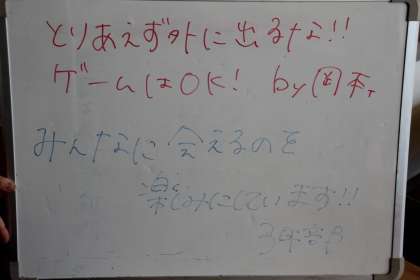 とりあえず外に出るな!!
ゲームはOK! by
みんなに会えるのを
楽しみにしています!!